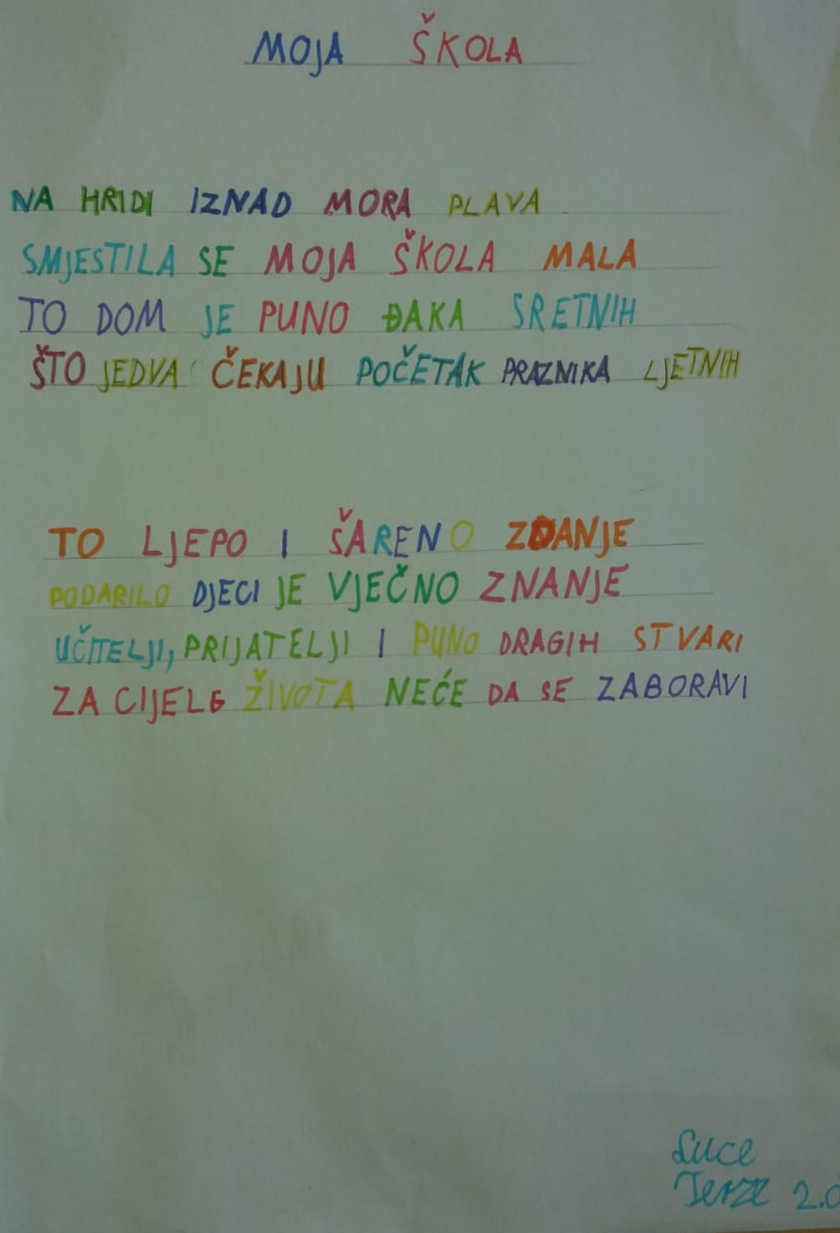 MOJA ŠKOLA
NA HRIDI IZNAD MORA PLAVA
SMJESTILA SE MOJA ŠKOLA MALA
TO DOM JE PUNO ĐAKA SRETNIH
ŠTO JEDVA ČEKAJU POČETAK PRAZNIKA LJETNIH
TO LJEPO I ŠARENO ZDANJE
PODARILO DJECI JE VJEČNO ZNANJE
UČITELJI, PRIJATELJI I PUNO DRAGIH STVARI
ZA CIJELG ŽIVOTA NEĆE DA SE ZABORAVI
Luce
Terze